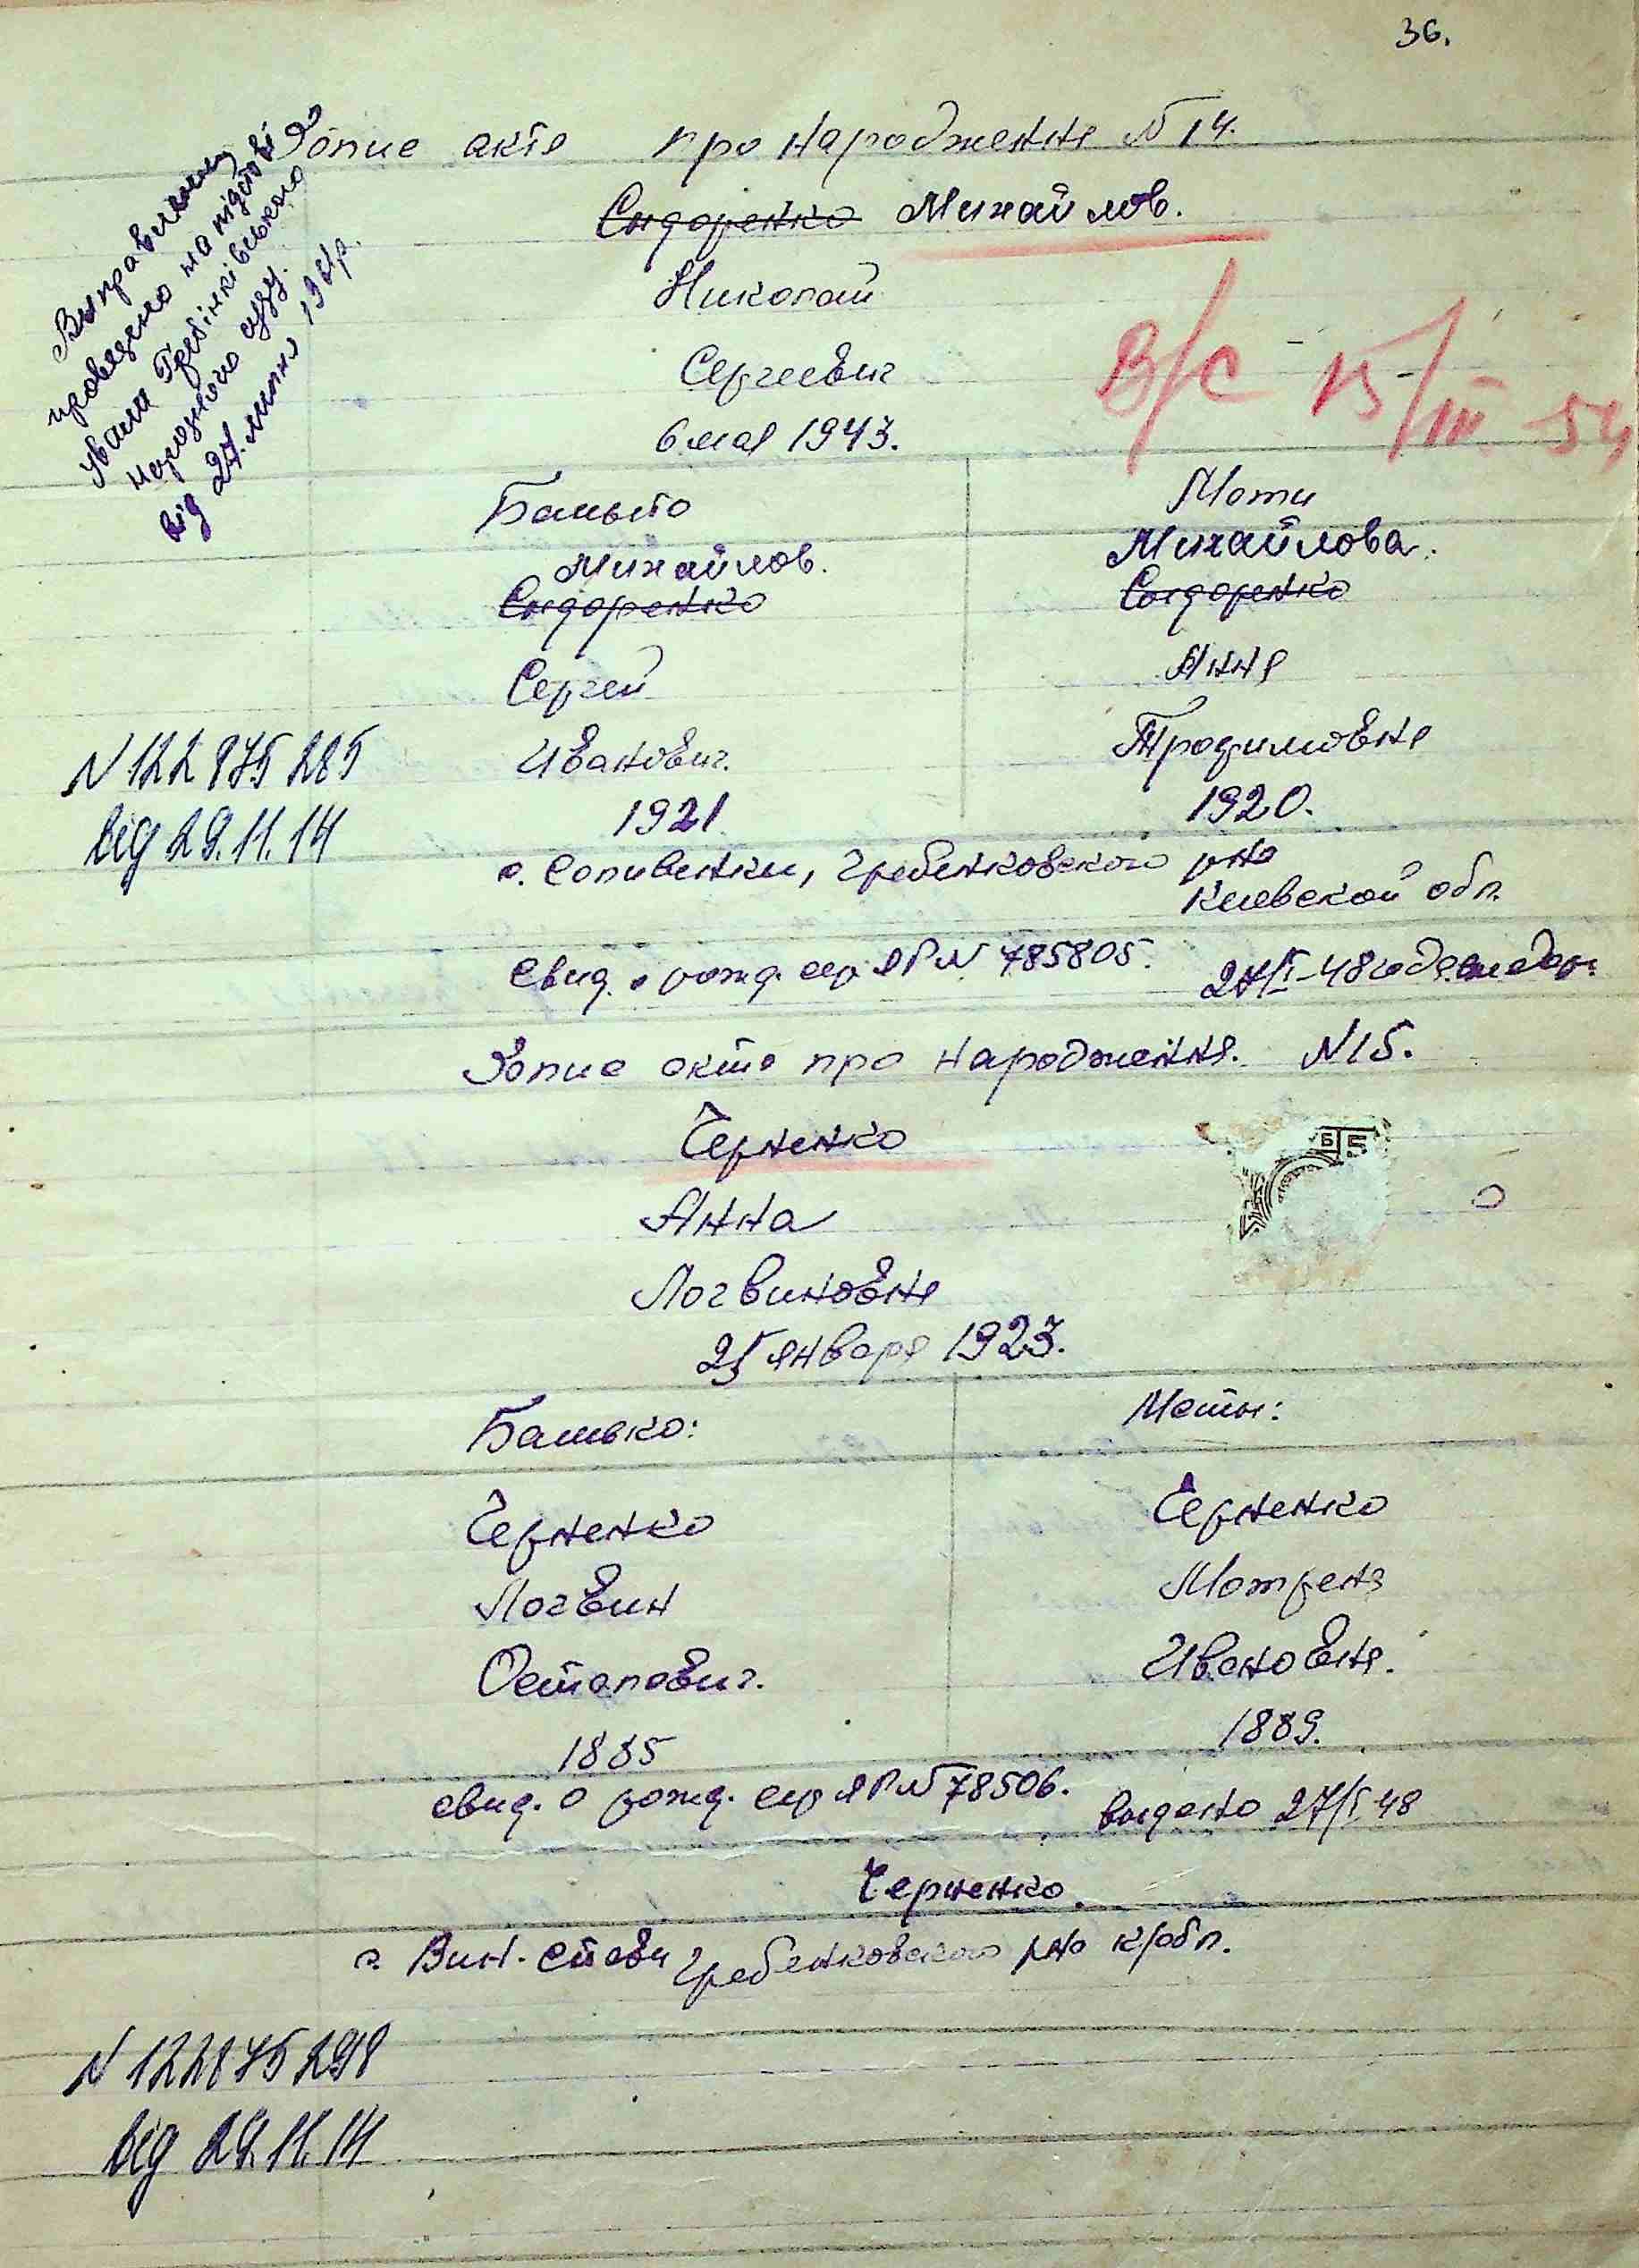 36.
Запис акта про народження N 14.
Виправлення
проведено на підставі
ухвали Гребінківського
народного суду.
від 27 липня 1951р.
Сидоренко Михайлов.
Николай
Сергеевич
6 мая 1943.
В/С 15/III-54
Батько
Мати
Михайлов.
Михайлова.
Сидоренко
Сидоренко
Сергей
Анна
Иванович.
Трофимовна
1921
1920.
N 122875285
від 29.11.14
с. Соливенки, Гребенковского р-на
Киевской обл.
Свид. о рожд. сер ЯР N 785805.
27/I-48
Запис акта про народження. N 15.
Черненко
Анна
Логвиновна
25 января 1923.
Батько:
Мати:
Черненко
Черненко
Логвин
Мотрена
Остапович.
Ивановна.
1885
1889.
свид. о рожд. сер ЯР N 78506. выдано 27/I 48
Черненко
с. Вин-Стави Гребенковского р-на к/обл.
N 122875298
від 29.11.14